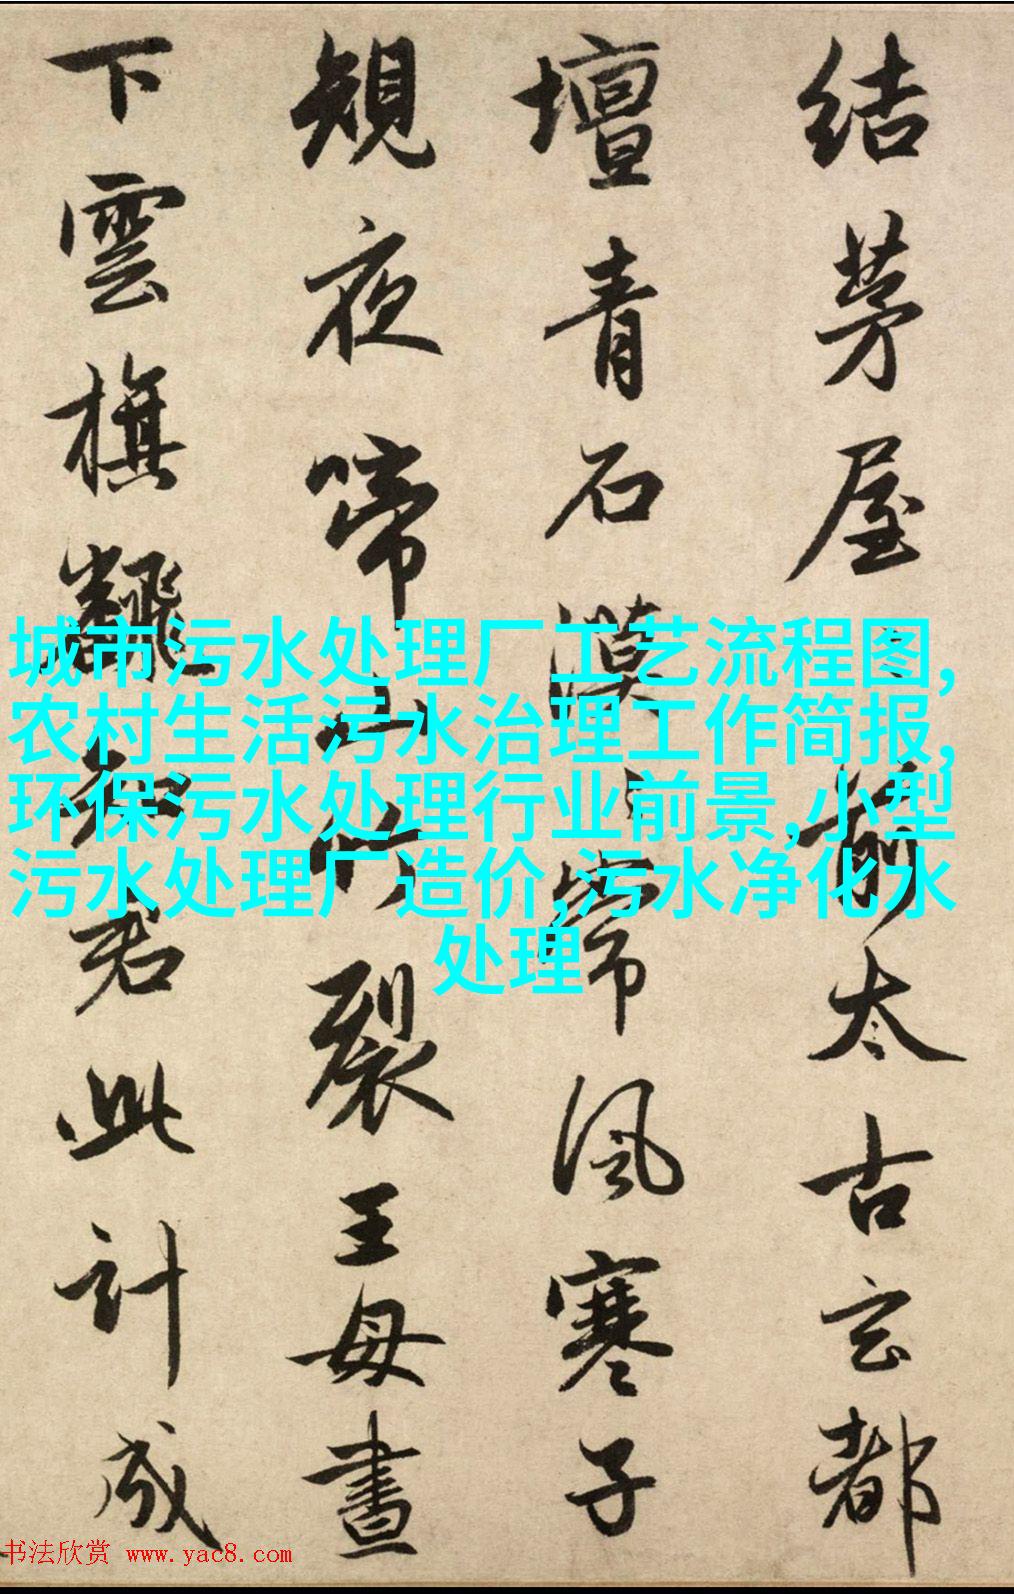 结茅屋々前太古玄都
壇青石漠々常風寒子
規夜啼山竹裂王母晝
下雲旗飜知君此計成
城市污水处理厂工艺流程图,
农村生活污水治理工作简报,
环保污水处理行业前景,小型
污水处理厂造价,污水净化水
处理
书法欣赏 www.yac8.com